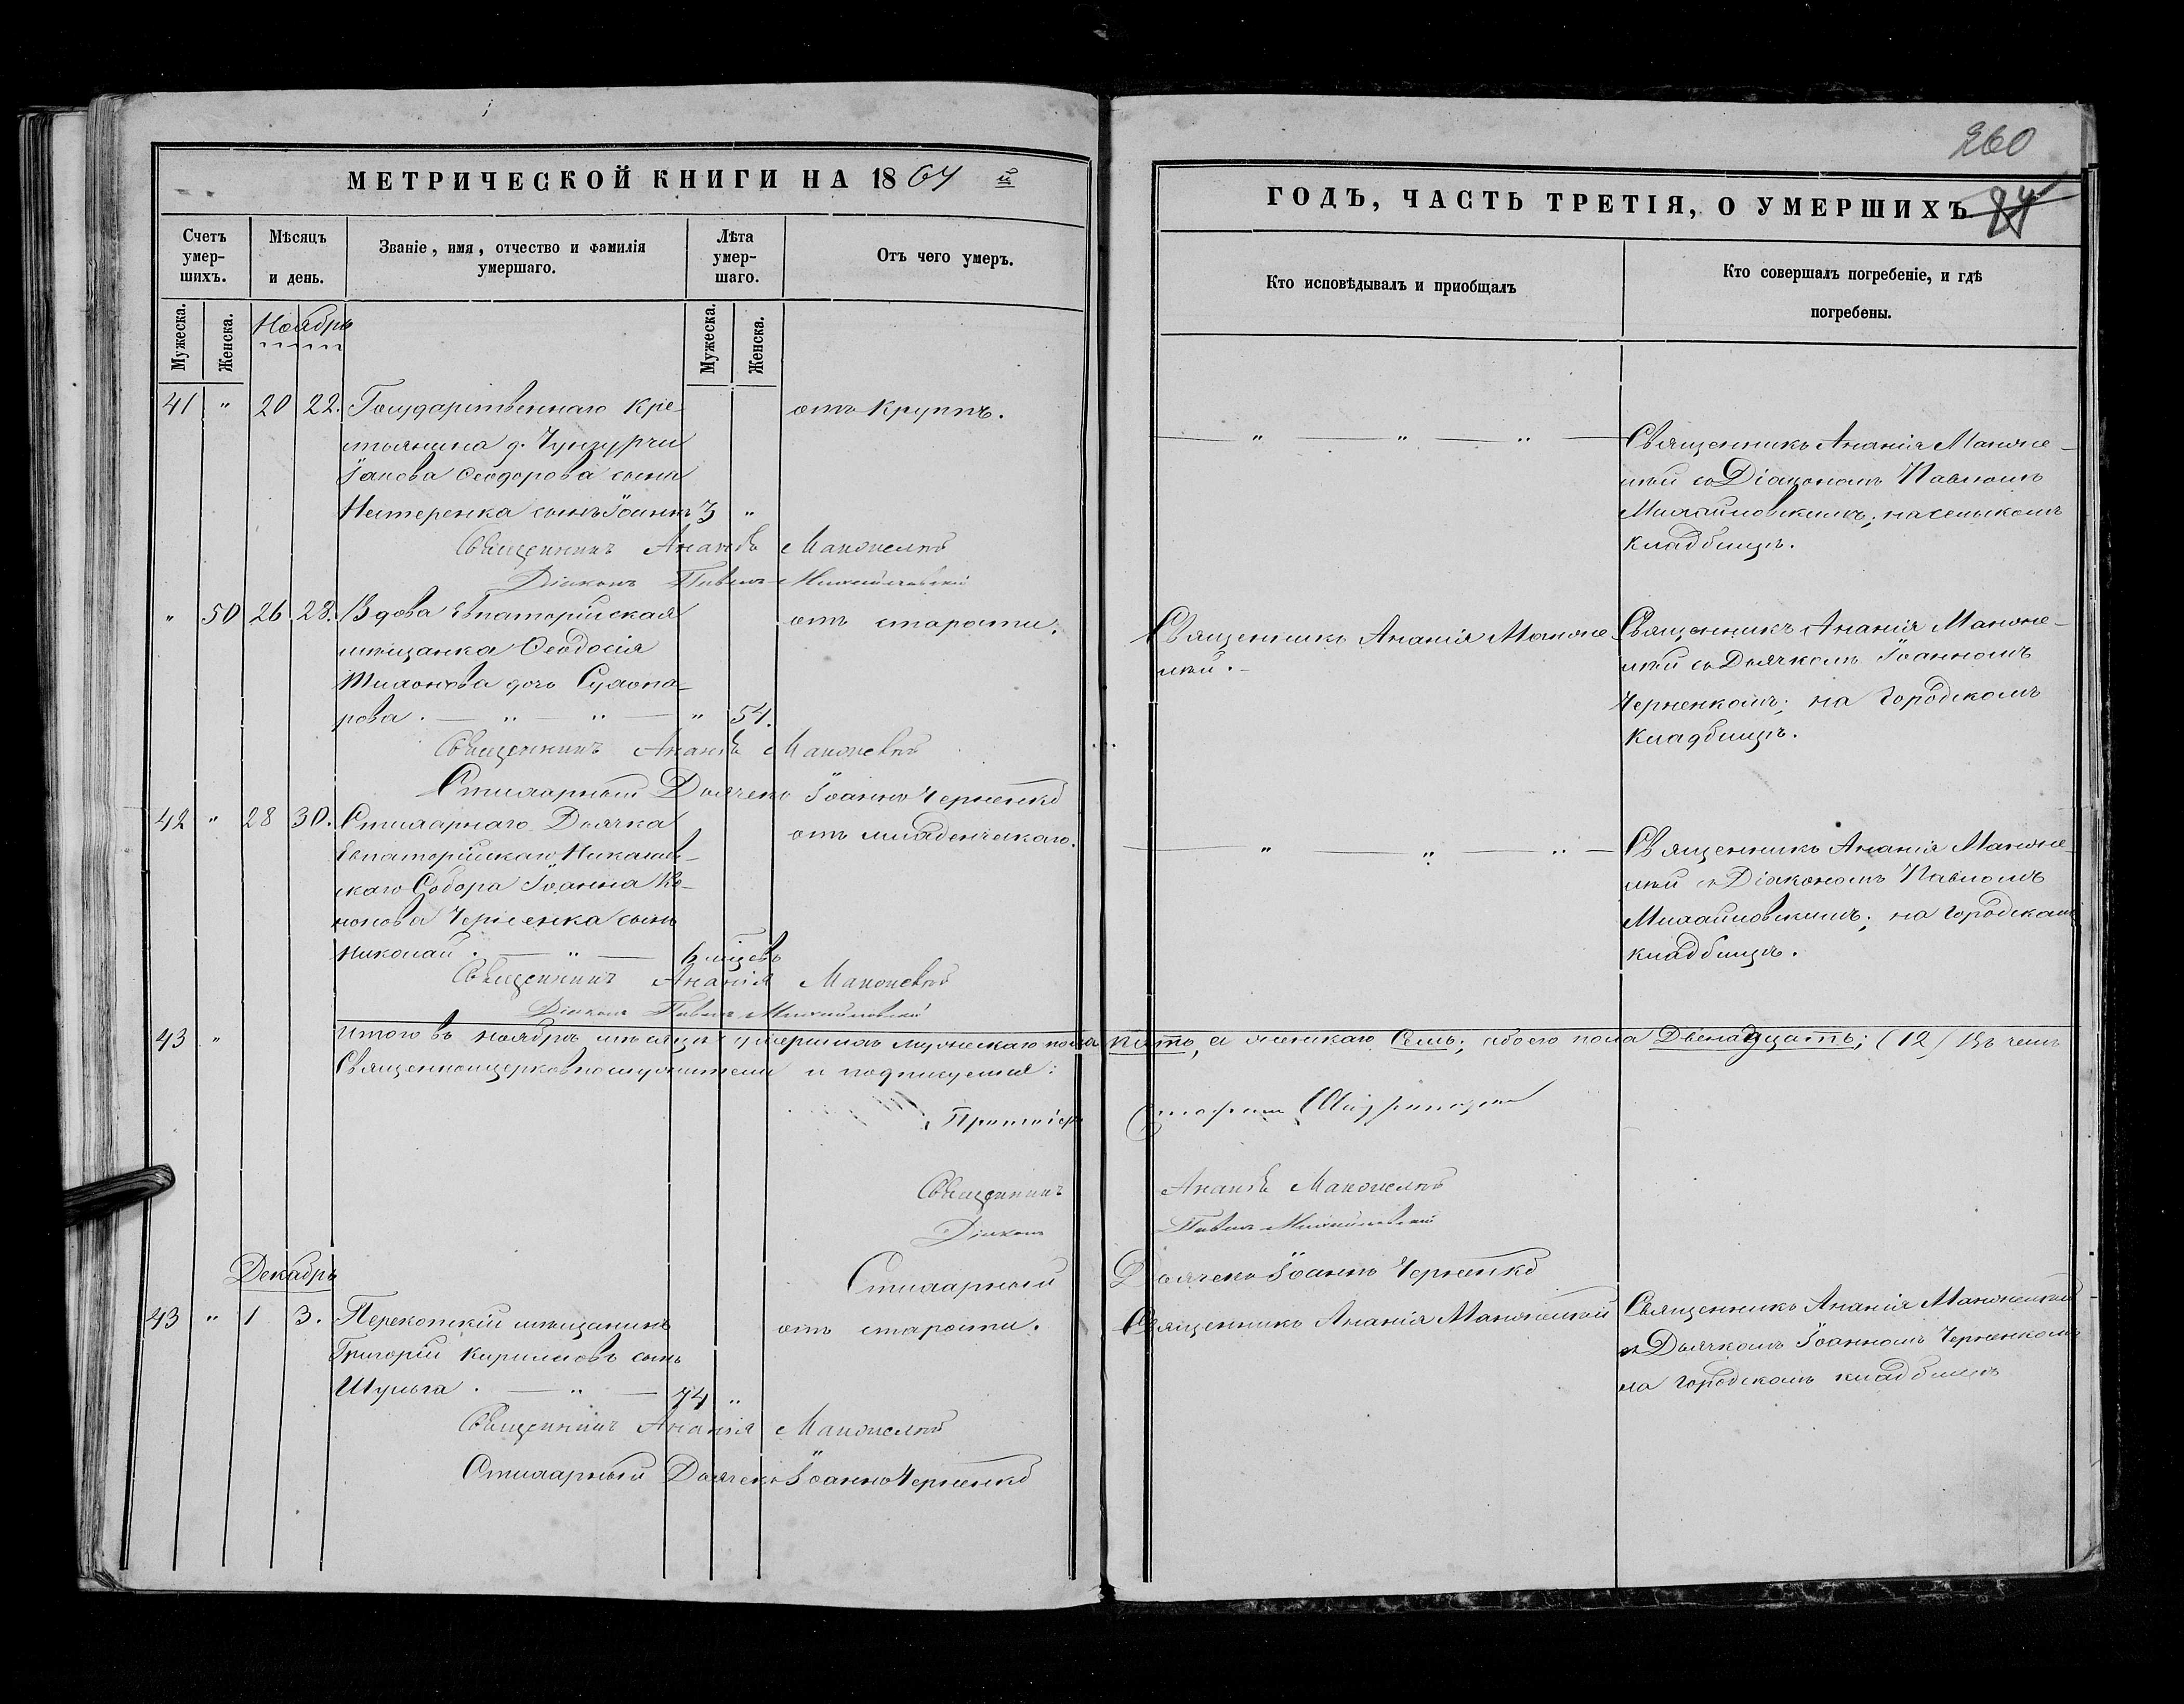 МЕТРИЧЕСКОЙ КНИГИ НА 1864 й
Счетъ умер-шихъ.
Мѣсяцъ и день.
Званіе, имя, отчество и фамилія умершаго.
Лѣта умер-шаго.
Отъ чего умеръ.
Мужеска.
Женска.
Ноябрь
Мужеска.
Женска.
41 " 20 22. Государственнаго кре- отъ крупъ.
стьянина д. Чунгурчи
Іакова Ѳеодорова сына
Нестеренка сынъ Іоаннъ 3 "
Священникъ Ананія
Діаконъ Павелъ Михайловскій
" 50 26 28. Вдова Евпаторійская отъ старости.
мѣщанка Ѳеодосія
дочь
рова. — " — " — " 54.
Священникъ Ананія
Стихарный Дьячекъ Іоаннъ Черненко
42 " 28 30. Стихарнаго Дьячка отъ младенческаго.
Евпаторійскаго Николаев-
скаго Собора Іоанна Ко-
нонова Черненка сынъ
Николай. — " — 6 мѣсяцъ
Священникъ Ананія
Діаконъ Павелъ Михайловскій
43 " Итого въ ноябрѣ мѣсяцѣ умершихъ мужескаго пола пять, а женскаго семь; обоего пола двенадцать; (12) Въ чемъ
Священноцерковнослужители и подписуемся:
Протоіерей
Священникъ Ананія
Діаконъ Павелъ Михайловскій
Стихарный Дьячекъ Іоаннъ Черненко
Декабрь
43 " 1 3. Перекопскій мѣщанинъ отъ старости.
Григорій Кирилловъ сынъ
Шульга. — " — 74 "
Священникъ Ананія
Стихарный Дьячекъ Іоаннъ Черненко
260
84
ГОДЪ, ЧАСТЬ ТРЕТІЯ, О УМЕРШИХЪ
Кто исповѣдывалъ и приобщалъ
Кто совершалъ погребеніе, и гдѣ погребены.
— " — " — " —
Священникъ Ананія
съ Діакономъ Павломъ
Михайловскимъ; на сельскомъ
кладбищѣ.
Священникъ Ананія
Священникъ Ананія
съ Дьячкомъ Іоанномъ
Черненкомъ; на Городскомъ
Кладбищѣ.
— " — " — " —
Священникъ Ананія
съ Діакономъ Павломъ
Михайловскимъ; на Городскомъ
кладбищѣ.
Священникъ Ананія
Священникъ Ананія
съ Дьячкомъ Іоанномъ Черненкомъ
на Городскомъ кладбищѣ